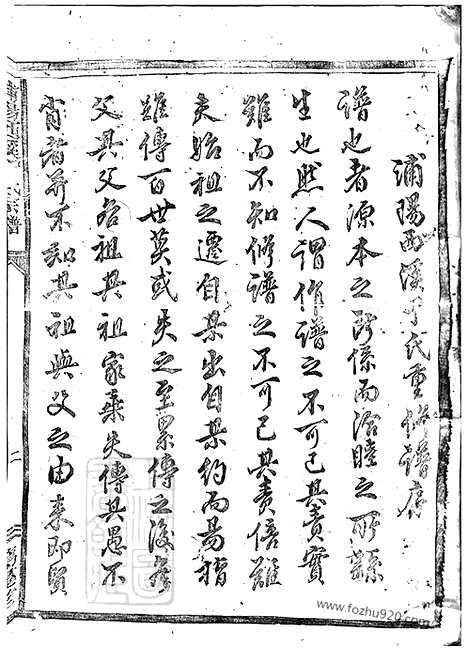 浦陽西溪丁氏重修譜序
譜也者源本之所係而洽睦之所繇
生也然人謂作譜之不可已其責實
難而不知修譜之不可已其責倍難
夫始祖之遷自某出自某約而易稽
雖傳百世莫或失之至累傳之後各
父其父各祖其祖家乘失傳其愚不
肖者并不知其祖與父之由來即賢
氏宗譜
二
www.fozhu920.com